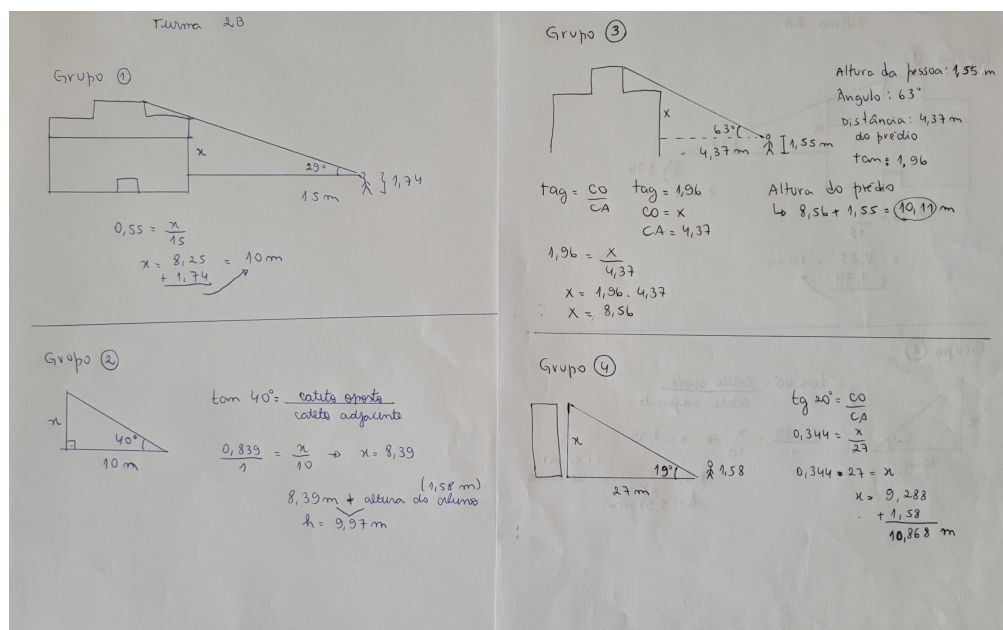 Turma 2B
Grupo 1
x
29°
15m
1,74
0,55 = x/15
x = 8,25 = 10m
+ 1,74
Grupo 2
x
40°
10m
tan 40° = cateto oposto / cateto adjacente
0,839/1 = x/10 → x = 8,39
(1,58 m)
8,39m + altura do aluno
h = 9,97m
Grupo 3
x
63°
4,37m
1,55m
Altura da pessoa: 1,55 m
Ângulo: 63°
Distância: 4,37m
do prédio
tan: 1,96
tag = CO/CA
tag = 1,96
CO = x
CA = 4,37
1,96 = x/4,37
x = 1,96 . 4,37
x = 8,56
Altura do prédio
↳ 8,56 + 1,55 = 10,11 m
Grupo 4
x
19°
27m
1,58
tg 20° = CO/CA
0,344 = x/27
0,344 • 27 = x
x = 9,288
+ 1,58
10,868 m